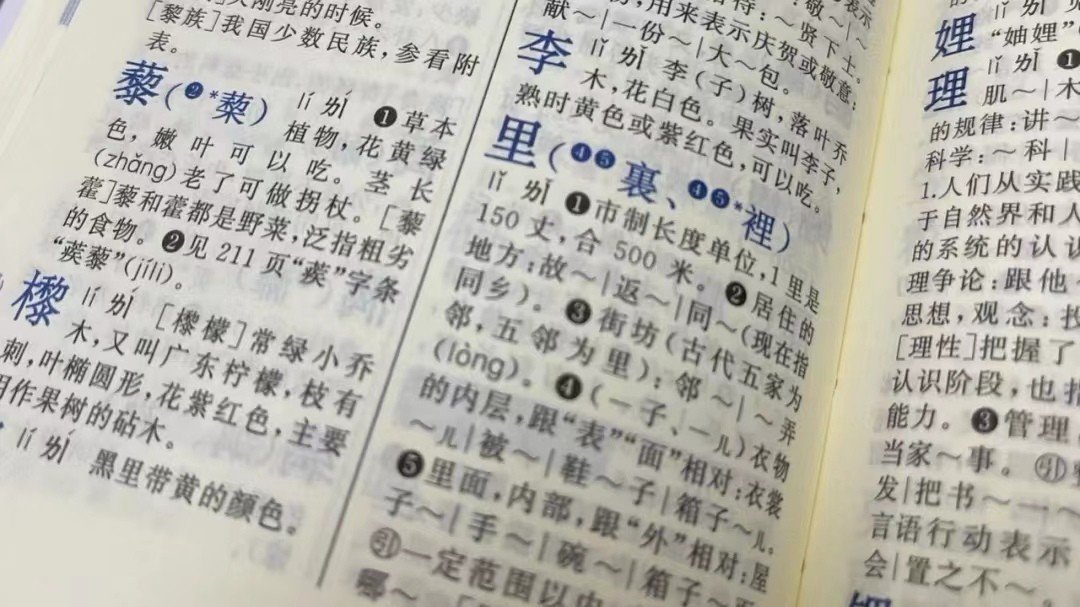 天刚亮的时候。
[黎族]我国少数民族，参看附
表。
藜(❷*蔾) lí ㄌㄧˊ ❶草本
植物，花黄绿
色，嫩叶可以吃。茎长
(zhǎng)老了可做拐杖。[藜
藿]藜和藿都是野菜，泛指粗劣
的食物。❷见211页“蒺”字条
“蒺藜”(jílí)。
檬 lí ㄌㄧˊ [檬檬]常绿小乔
木，又叫广东柠檬，枝有
刺，叶椭圆形，花紫红色，主要
用作果树的砧木。
lí ㄌㄧˊ 黑里带黄的颜色。
待：～贤下士。
用来表示庆贺或敬意：
献～|一份～|大～包。
李 lǐ ㄌㄧˇ 李(子)树，落叶乔
木，花白色。果实叫李子，
熟时黄色或紫红色，可以吃。
里(❹❺裏、❹❺*裡)
lǐ ㄌㄧˇ ❶市制长度单位，1里是
150丈，合500米。❷居住的
地方：故～|返～|同～(现在指
同乡)。❸街坊(古代五家为
邻，五邻为里)：邻～|～弄
(lòng)。❹(一子、一儿)衣物
的内层，跟“表”“面”相对：衣裳
～儿|被～|鞋～子|箱子～儿。
❺里面，内部，跟“外”相对：屋
子～|手～|碗～|箱子～
㊁一定范围以内
哪～
娌
“妯娌”
理 lǐ ㄌㄧˇ ❶
肌～|木
的规律：讲～
科学：～科|
1.人们从实践
于自然界和人
的系统的认识
理争论：跟他
思想，观念：投
[理性]把握了
认识阶段，也指
能力。❸管理
当家～事。㊁
发|把书～一～
言语行动表示
会|置之不～。